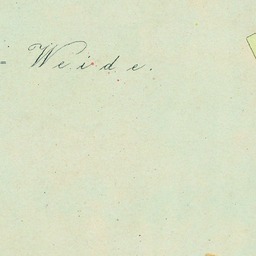 - Weide.